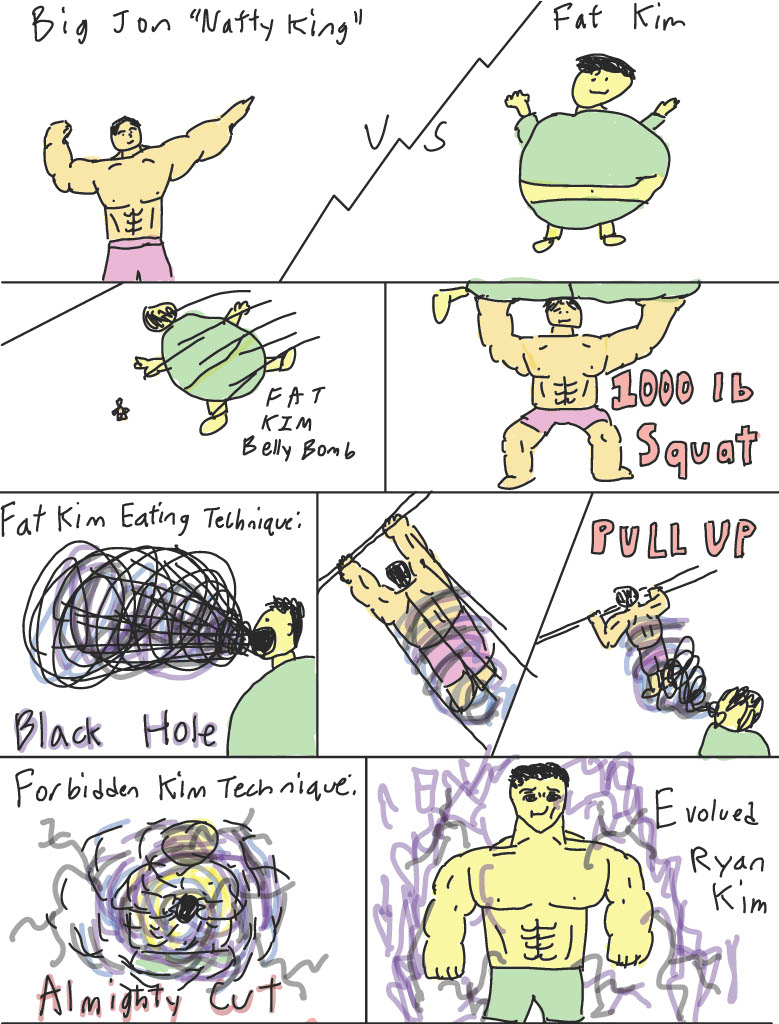 Big Jon "Natty King"
VS
Fat Kim
FAT
KIM
Belly Bomb
1000 lb
Squat
Fat Kim Eating Technique:
Black Hole
PULL UP
Forbidden Kim Technique:
Almighty Cut
Evolved
Ryan
Kim